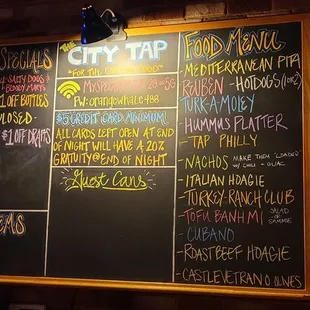 SPECIALS
$4 SALTY DOGS &
BLOODY MARYS
$1 OFF BOTTLES
CLOSED
$1 OFF DRAFTS
THE CITY TAP
"FOR THE
PW: orangewhale488
$5 CREDIT CARD MINIMUM!
ALL CARDS LEFT OPEN AT END
OF NIGHT WILL HAVE A 20%
GRATUITY @ END OF NIGHT
Guest Cans
FOOD MENU
- MEDITERRANEAN PITA
- REUBEN - HOTDOGS (1 or 2)
- TURK-A-MOLEY
- HUMMUS PLATTER
- TAP PHILLY
- NACHOS MAKE THEM "LOADED"
W/ CHILI + GUAC
- ITALIAN HOAGIE
- TURKEY-RANCH CLUB
- TOFU BANH MI SALAD
OR
SAMMIE
- CUBANO
- ROAST BEEF HOAGIE
- CASTLEVETRANO OLIVES